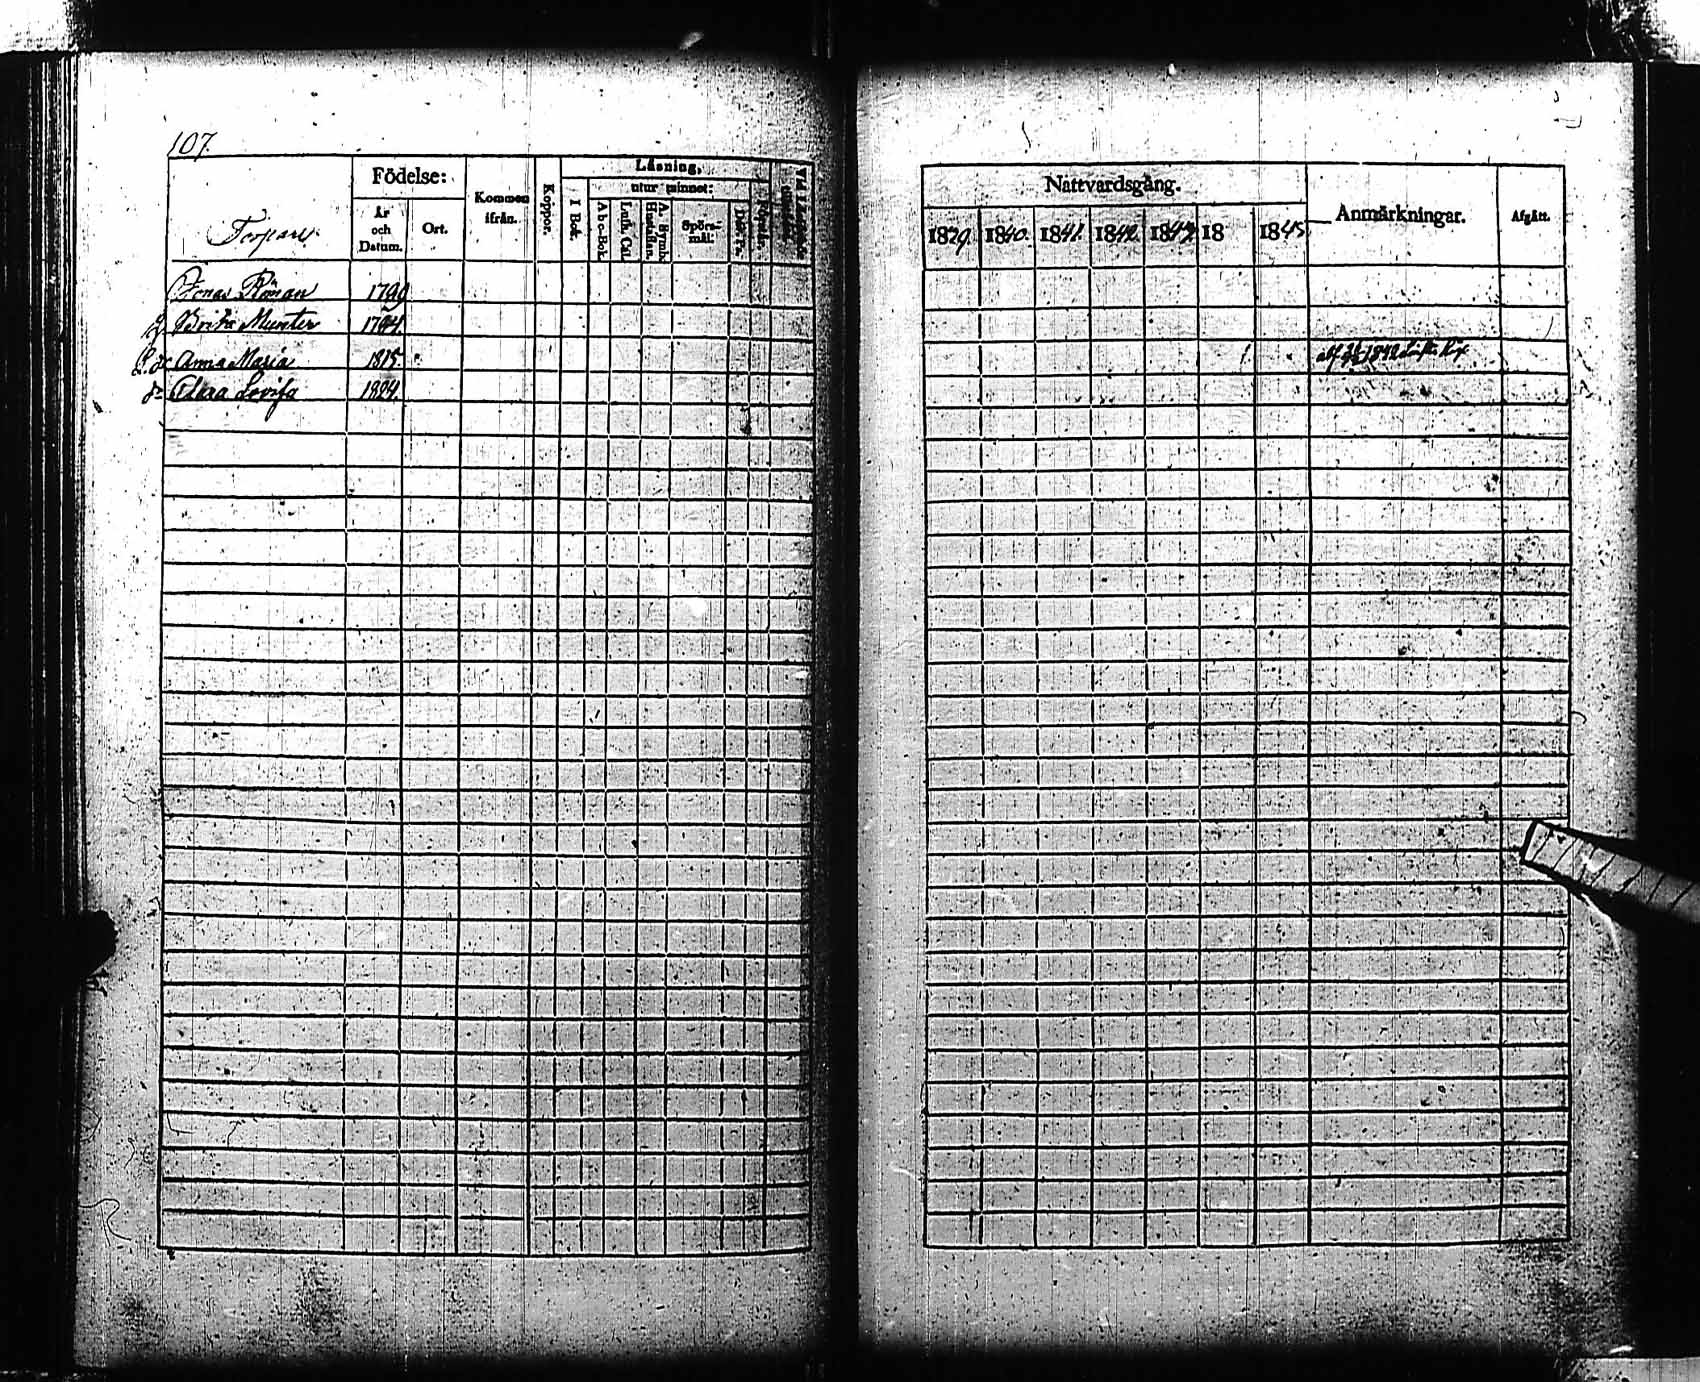 107.
Torpare.
Födelse:
År och Datum.
Ort.
Kommen ifrån.
Koppor.
Läsning,
I Bok.
utur minnet:
A b c-Bok.
Luth. Cat.
A. Symb. Hustaflan.
Spörsmål:
Jonas Röman 1790
h. Brita Munter
Anna Maria 1815.
dr Clara Lovisa 1824.
Nattvardsgång.
1839. 1840. 1841. 1842. 1843. 18 1845
Anmärkningar.
Afgått.
1842